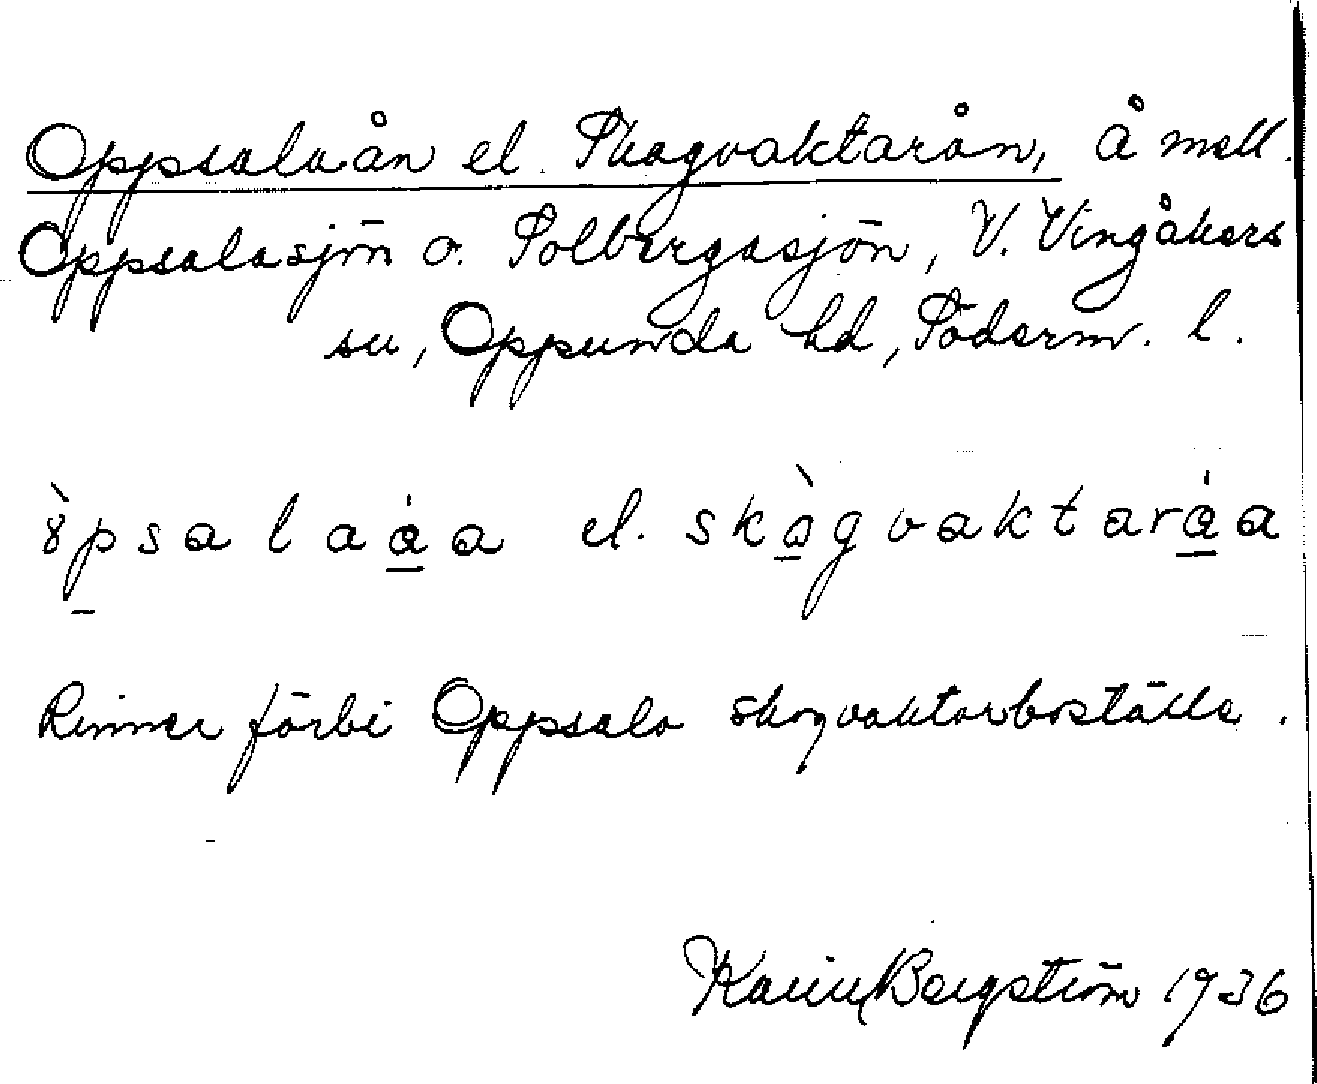 Oppsalaån el. Skogvaktarån, å mell.
Oppsalasjön o. Solbergasjön, V. Vingåkers
sn, Oppunda hd, Söderm. l.
ȣ̀psalaáa el. skògvaktaráa
Rinner förbi Oppsala skogvaktarboställe.
Karin Bergström 1936